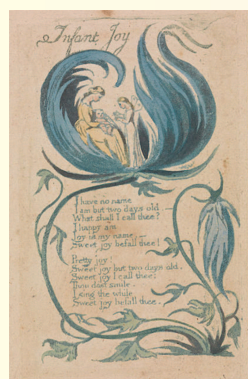 Infant Joy
I have no name
I am but two days old —
What shall I call thee?
I happy am
Joy is my name —
Sweet joy befall thee!
Pretty joy!
Sweet joy but two days old.
Sweet joy I call thee;
Thou dost smile.
I sing the while
Sweet joy befall thee.